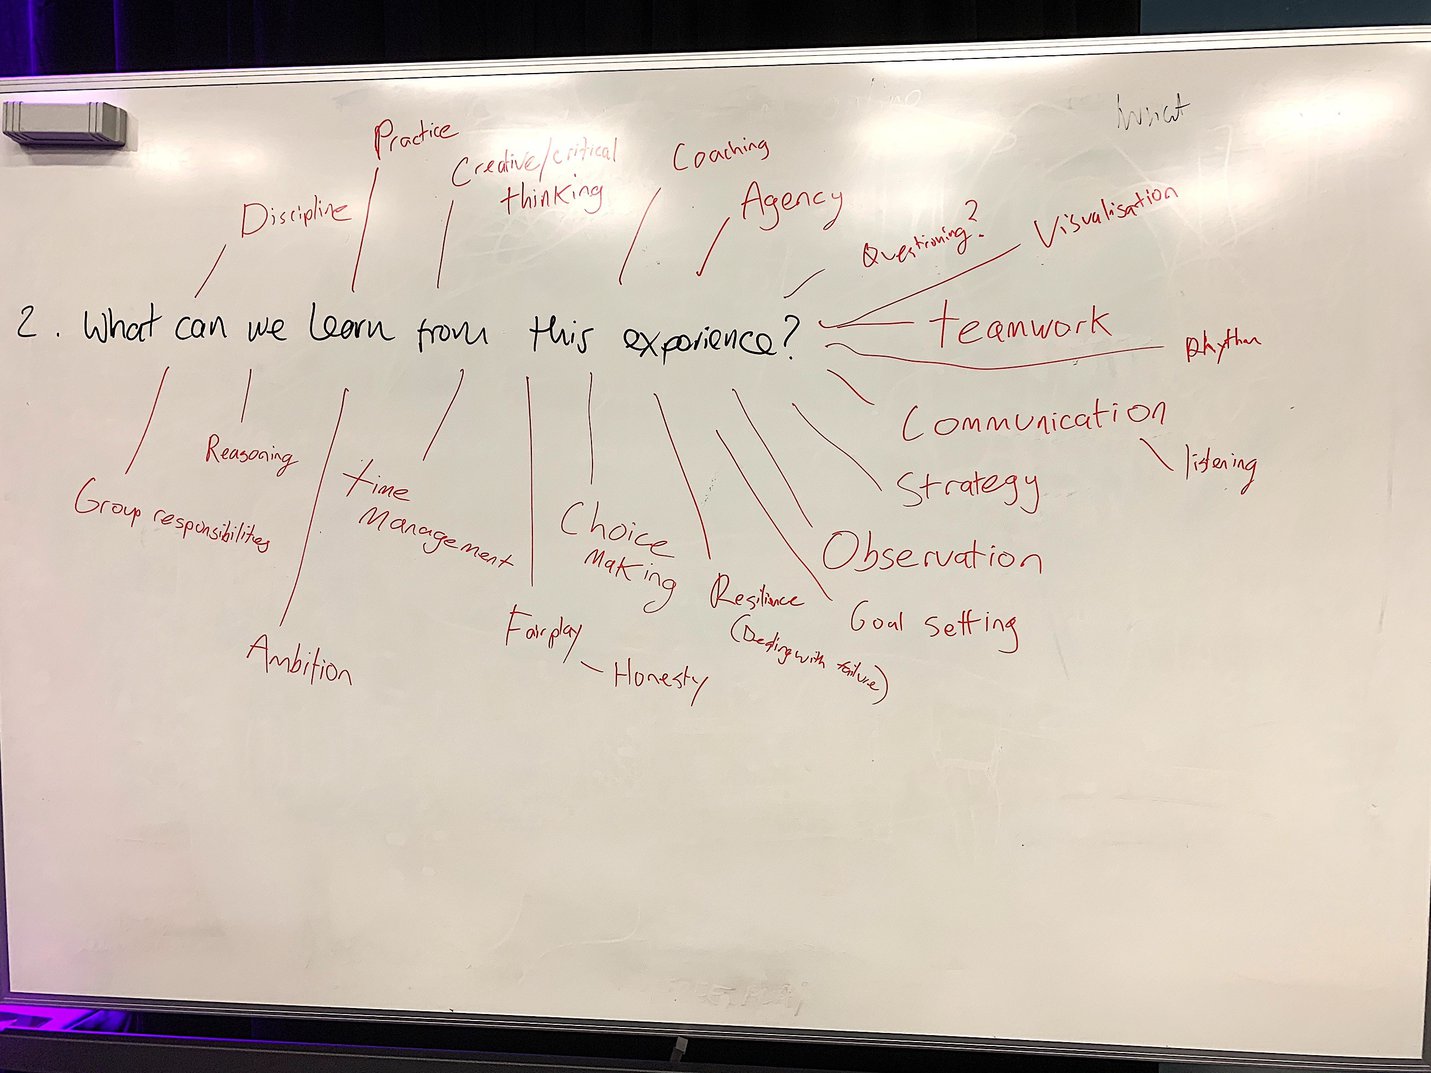 Practice
Creative/critical
thinking
Coaching
Discipline
Agency
Questioning?
Visualisation
2. What can we learn from this experience?
teamwork
Rhythm
Communication
listening
Reasoning
time
Management
Strategy
Group responsibilities
Choice
Making
Observation
Resilience
(Dealing with failure)
Goal setting
Fairplay
Honesty
Ambition